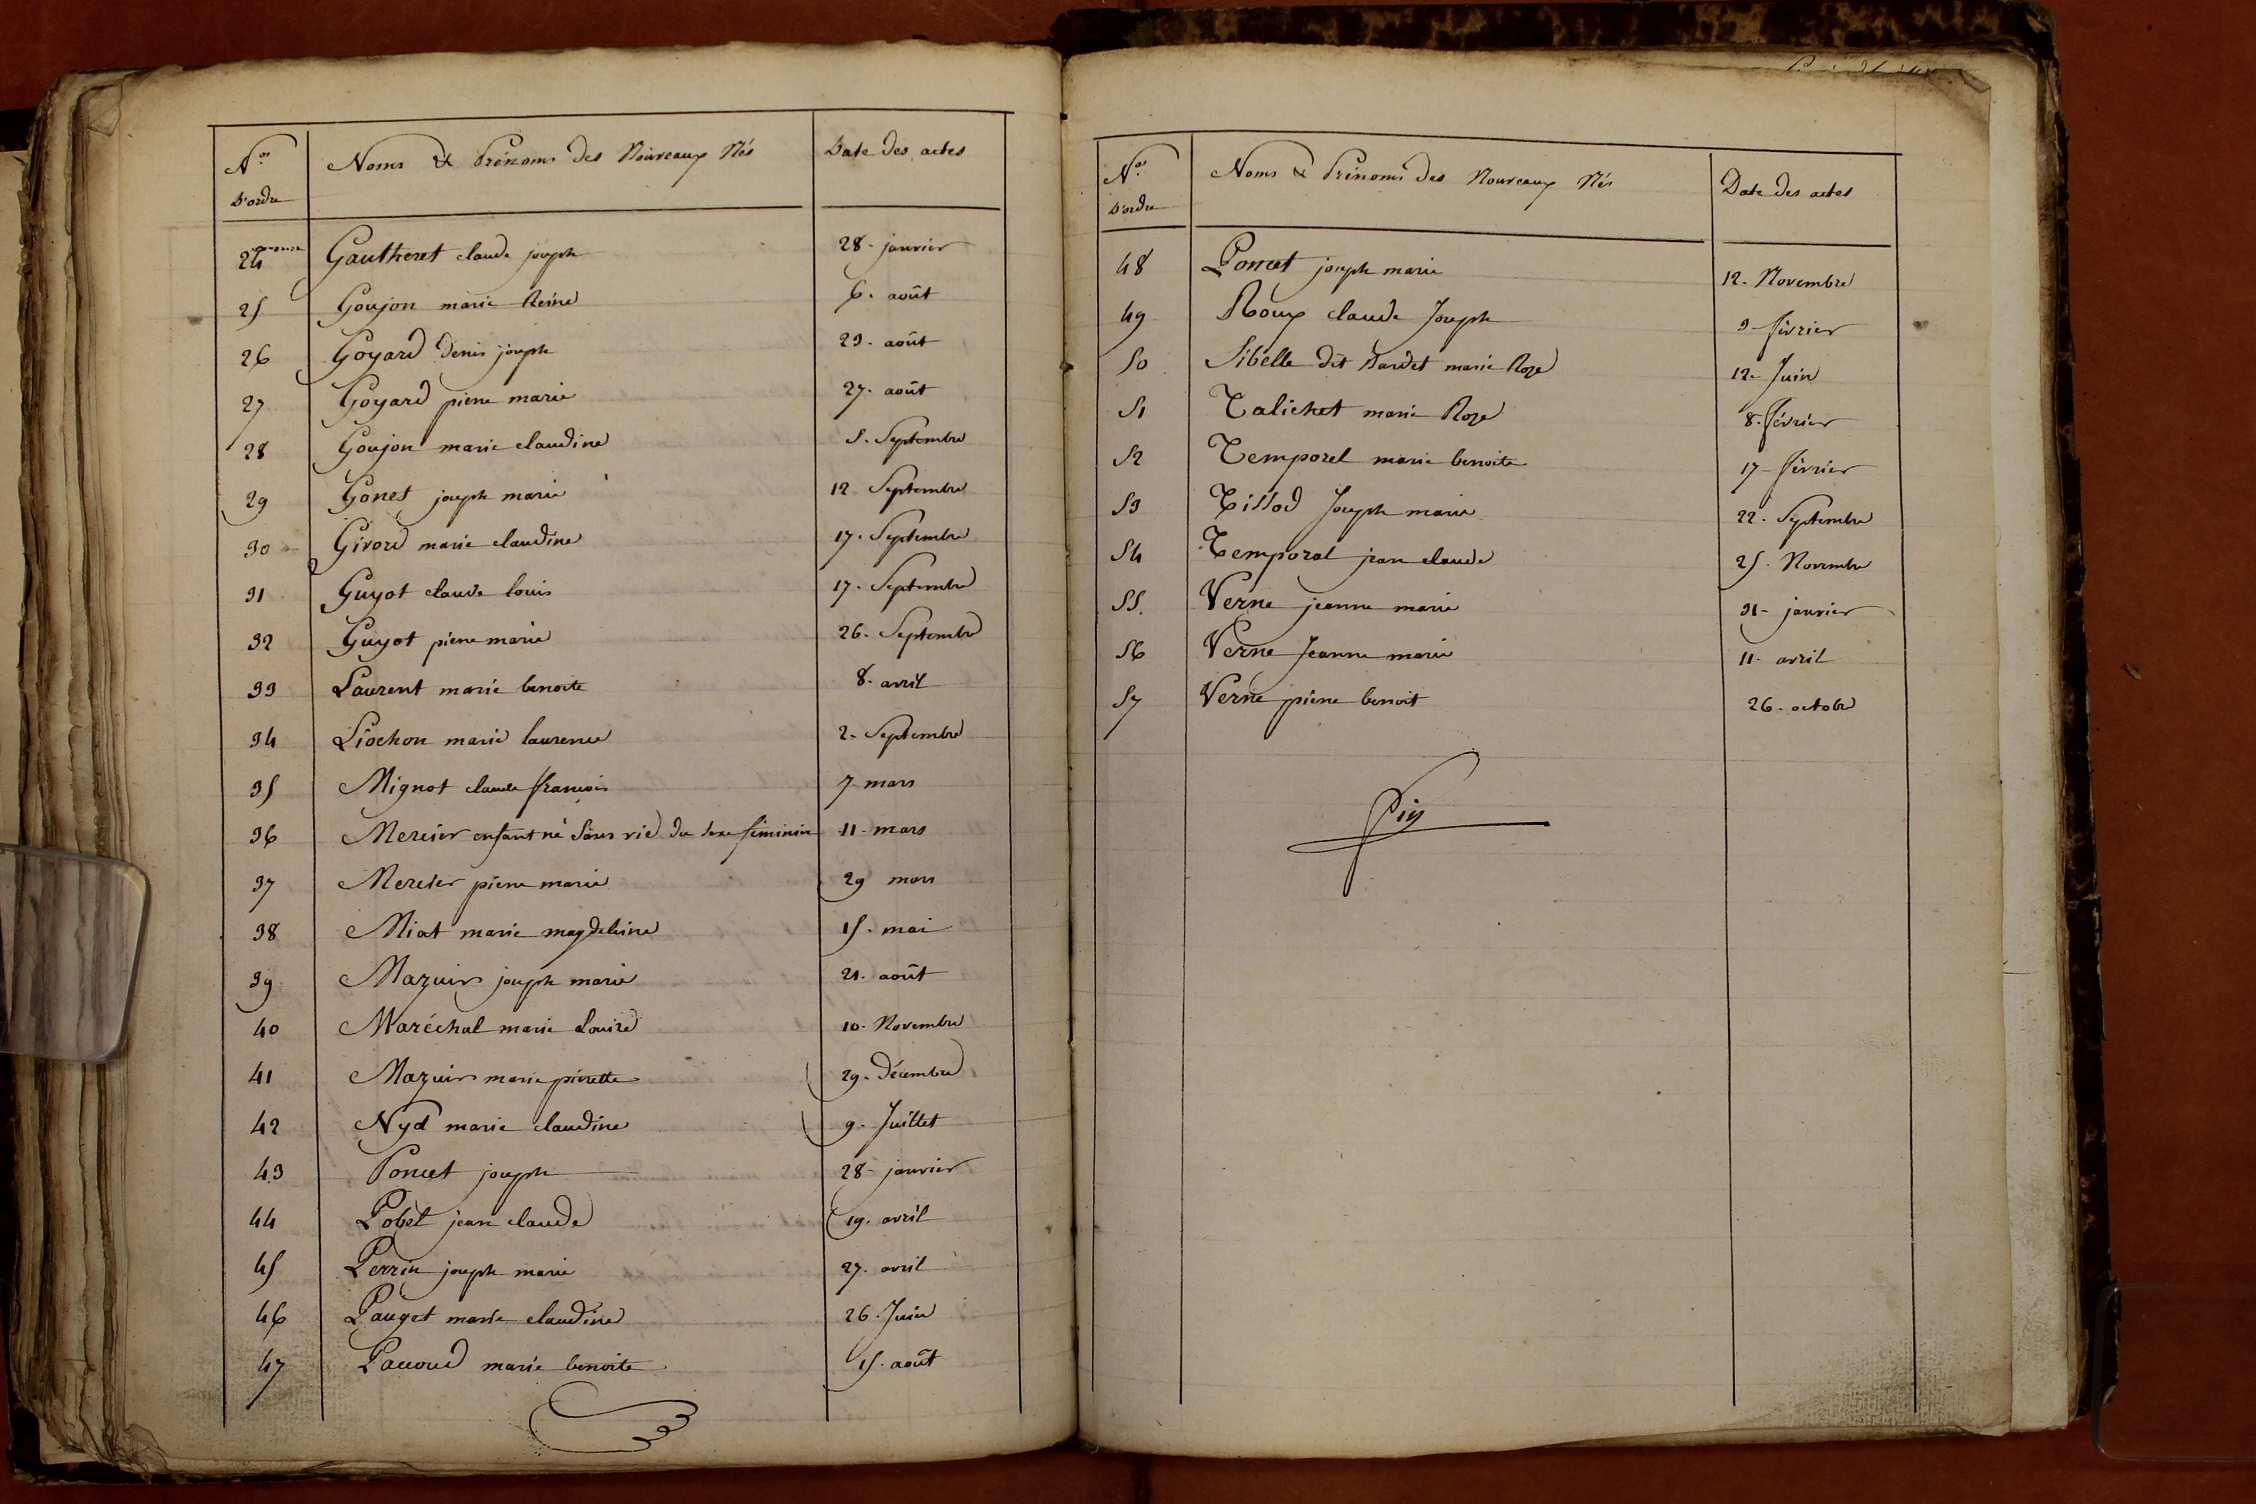 Nos Noms & Prénoms des Nouveaux Nés Date des actes
D'ordre
24 Gautheret claude joseph 28. janvier
25 Goujon marie Reine 6. août
26 Goyard Denis joseph 23. août
27 Goyard pierre marie 27. août
28 Goujon marie claudine 5. Septembre
29 Gonet joseph marie 12 Septembre
30 Girord marie claudine 17. Septembre
31 Guyot claude louis 17. Septembre
32 Guyot pierre marie 26. Septembre
33 Laurent marie benoite 8. avril
34 Liochon marie laurence 2. Septembre
35 Mignot claude françois 7 mars
36 Mercier enfant né sans vie du sexe féminin 11. mars
37 Mercier pierre marie 29 mars
38 Miat marie magdeleine 15. mai
39 Mazuir joseph marie 21. août
40 Maréchal marie Louise 10. Novembre
41 Mazuir marie pierrette 29. Décembre
42 Nyd marie claudine 9. Juillet
43 Poncet joseph 28. janvier
44 Pobel jean claude 19. avril
45 Perrin joseph marie 27. avril
46 Pauget marie claudine 26. Juin
47 Pauoud marie benoite 15. août
Nos Noms & Prénoms des Nouveaux Nés Date des actes
D'ordre
48 Poncet joseph marie 12. Novembre
49 Roux claude Joseph 3. février
50 Sibelle dit Dardet marie Roze 12. Juin
51 Talichet marie Roze 8. février
52 Temporel marie benoite 17. février
53 Tissod Joseph marie 22. Septembre
54 Temporal jean claude 25. Novembre
55. Verne jeanne marie 31. janvier
56 Verne Jeanne marie 11. avril
57 Verne pierre benoit 26. octobre